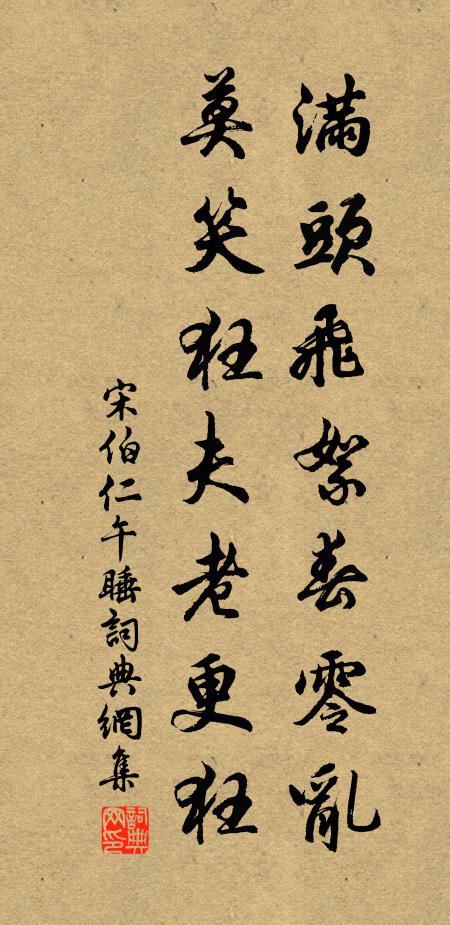 滿頭飛絮春零亂
莫笑狂夫老更狂
宋伯仁午睡詞典網集
詞典网印